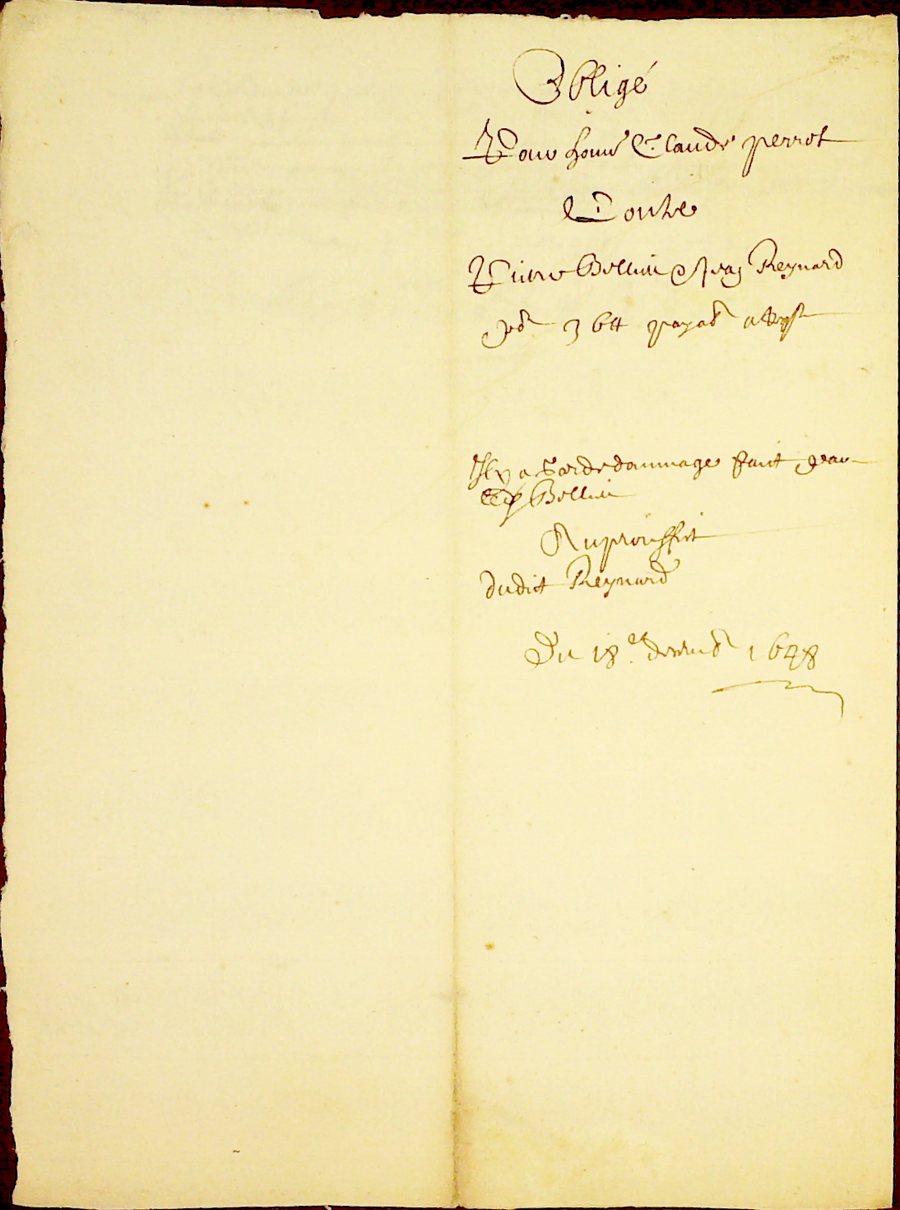 Obligé
Pour honn Claude perrot
Contre
Pierre Bellin Reynard
de 36 tt payab a
Il y a Garde dommage faict par
Bellin
Au prouffit
dudict Reynard
Du 18e 1648